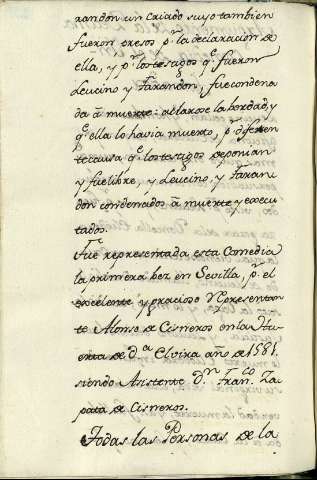 randon un criado suyo tambien
fueron presos p.r la declaracion de
ella, y p.r los testigos q.e fueron
Leucino y Farandon, fue condena
da à muerte: aclarose la berdad, y
q.e ella lo havia muerto, p.r
te causa q.e los testigos deponian
y fue libre, y Leucino, y Faran
don condenados à muerte y execu
tados.
Fue representada esta Comedia
la primera bez en Sevilla, p.r el
excelente y gracioso Representan
te Alonso de Cisneros en la Hu
erta de D.a Elvira año de 1581.
siendo Asistente D.n Fran.co Za
pata de Cisneros.
Todas las Personas de la